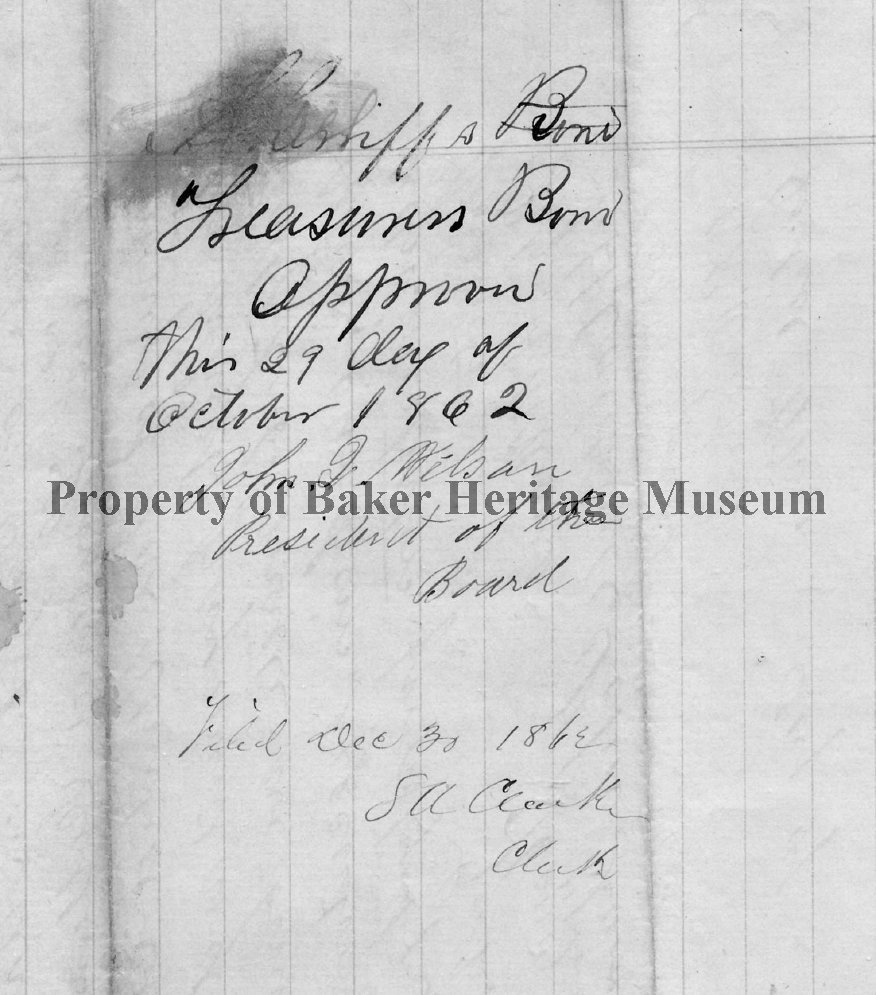 Sheriffs Bond
Treasurers Bond
Approved
this 29 day of
October 1862
John Q. Wilson
Property of Baker Heritage Museum
President of the
Board
Filed Dec 30 1862
S A Clarke
Clerk